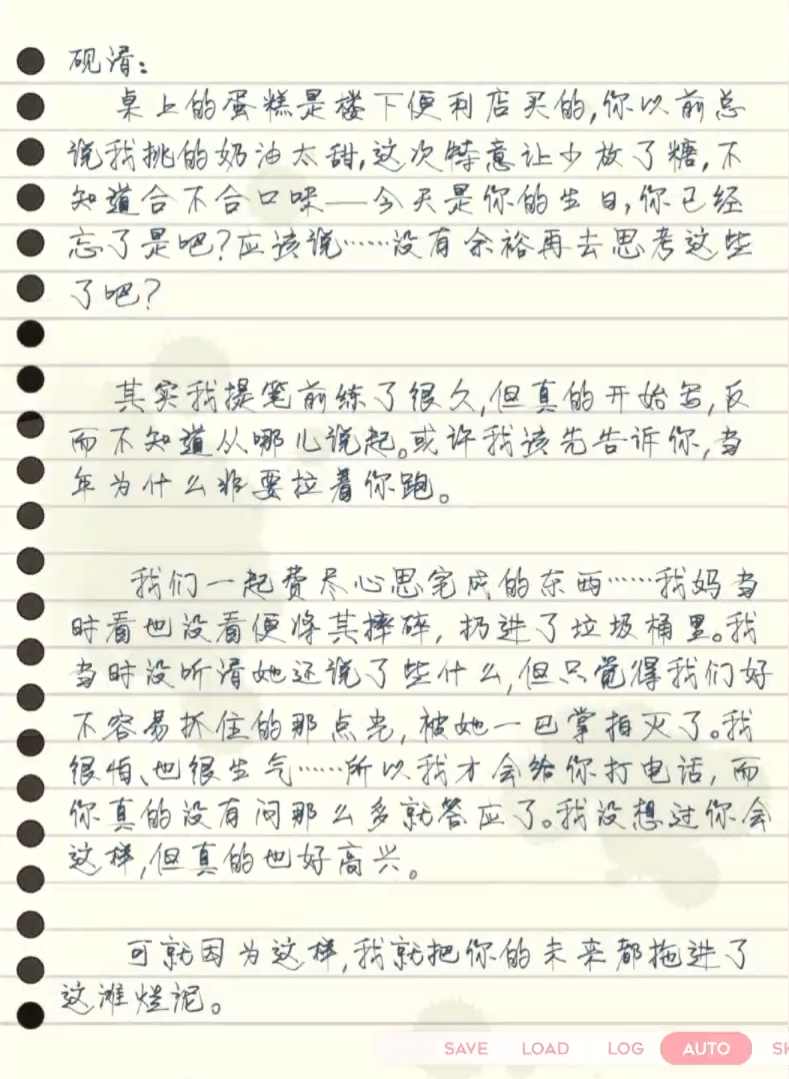 砚清：
桌上的蛋糕是楼下便利店买的，你以前总
说我挑的奶油太甜，这次特意让少放了糖，不
知道合不合口味——今天是你的生日，你已经
忘了是吧？应该说……没有余裕再去思考这些
了吧？
其实我提笔前练了很久，但真的开始写，反
而不知道从哪儿说起。或许我该先告诉你，当
年为什么非要拉着你跑。
我们一起费尽心思完成的东西……我妈当
时看也没看便将其摔碎，扔进了垃圾桶里。我
当时没听清她还说了些什么，但只觉得我们好
不容易抓住的那点光，被她一巴掌拍灭了。我
很怕、也很生气……所以我才会给你打电话，而
你真的没有问那么多就答应了。我没想过你会
这样，但真的也好高兴。
可就因为这样，我就把你的未来都拖进了
这滩烂泥。
SAVE LOAD LOG AUTO SK